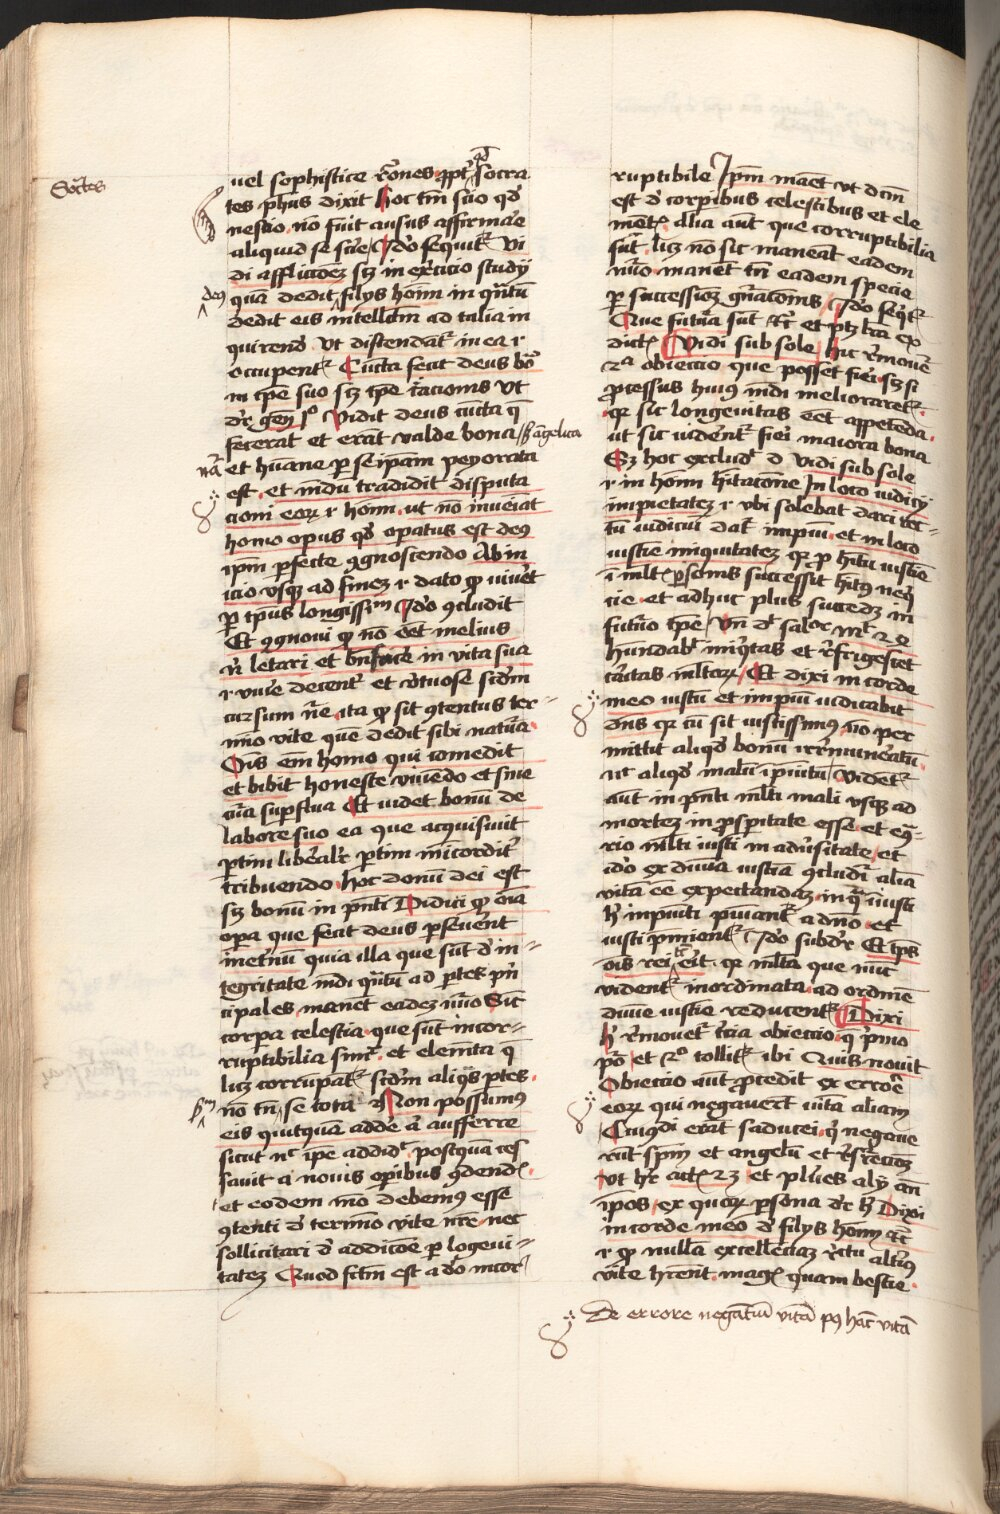 Socrates
uel sophistice rones ppt qd Socra
tes phus dixit hoc tm scio qd
nescio. no fuit ausus affirmare
aliquid se scire Ideo sequit Vi
di afflictoez sz in exercicio studij
quam dedit deus filijs hoim in quantu
dedit eis intellcm ad talia in
quirend. Vt distendat in ea r
occupent Cuncta fecit deus bo
in tpe suo sz tpe creacionis Vt
dr gen 1o Vidit deus cuncta q
fecerat et erant valde bona / sz angelica
na et humane p seipam peyorata
est. et mdu tradidit disputa
cioni eorz r hoim. ut no inueiat
homo opus qd opatus est deus
ipm pfecte 9gnoscendo Ab in
icio vsqz ad finez r dato q viuet
p tpus longissm Ideo 9cludit
Et 9gnoui q no eet melius
n letari et bnface in vita sua
r viue decent et vtuose scdm
cursum nre. ita q sit 9tentus ter-
mino vite que dedit sibi natura.
Ois em homo qui comedit
et bibit honeste viuedo et sine
cura supflua Et videt bonu de
labore suo ea que acquisiuit
ptim liberalr ptim mi'icordit
tribuendo. hoc donu dei est
sz bonu in pnti Didici q oia
opa que fecit deus pseuent
inetnu quia illa que sut d in-
tegritate mdi qntu ad ptes pn
cipales. manet eadez nuo Sicut
corpa celestia. que sut incor-
ruptibilia simr. et elemta q
licz corrumpat scdm aliqs ptes.
no tn sm se tota Non possumus
eis quicquam adde a aufferre
sicut nec ipe addid. postqua ces
sauit a nouis opibus 9dend.
et eodem mo debemus esse
9tenti de termino vite nre nec
sollicitari d addicoe p logeui-
tatez Quod fctm est a deo incor
ruptibile Ipm manet vt dcm
est d corpibus celestibus et ele
ment. Alia aut que corruptibilia
sut. licz no sic maneat eadem
nuo. manet tn eadem specie
p successioz gnacionis Ideo seqt
Que futura sut Et ptz lra ex
dict. Vidi sub sole hic remouet
2a obieccio que posset fieri. sz si
pcessus huius mdi melioraret.
q sic longeuitas eet appetenda.
ut sic viderent fieri maiora bona
Sz hoc excludit d Vidi sub sole
r in hoim hitacone In loco iudicij
impietatez r vbi solebat dari rec-
tu iudiciu dat impiu. et in loco
iusticie iniquitatez q p hitu iusticie
i mlt psonis successit hitus neq
cie. et adhuc plus succedz in
futuro tpe Vn dt saluator Mt 24
habundabit iniqtas et refrigescet
caritas mltorz / Et dixi in corde
meo iustu et impiu iudicabit
dns q cu sit iustissimus. no per
mittit aliqd bonu irremuneratu.
nec aliqd malu ipunitu Videt
aut in pnti mlti mali vsqz ad
mortez in psperitate esse. et e9-
rio mlti iusti in aduersitate. et
ideo ex diuina iusticia 9cludi alia
vita ee expectandaz. in q iniusti
h impuniti puniant a dno. et
iusti pmient Ideo subdr Et tps
ois rei tc erit. q mlta que nuc
vident inordinata. ad ordine
diuine iusticie reducent Dixi
h remouet tercia obieccio. q pmo
po et 2o tollit ibi Quis nouit
Obieccio aut pcedit ex errore
eorz qui negauert vita aliam
Cuiusdi erat saducei. q negaue
rut spm et angelu et resurreccoz
vt hr act 23 et plures alij an
ipos. ex quorz psona dr h Dixi
in corde meo d filijs hoim Et
r q nulla excellenciaz rectu alterius
vite hrent. magis quam bestie.
De errore negatiu vita pus hac vita